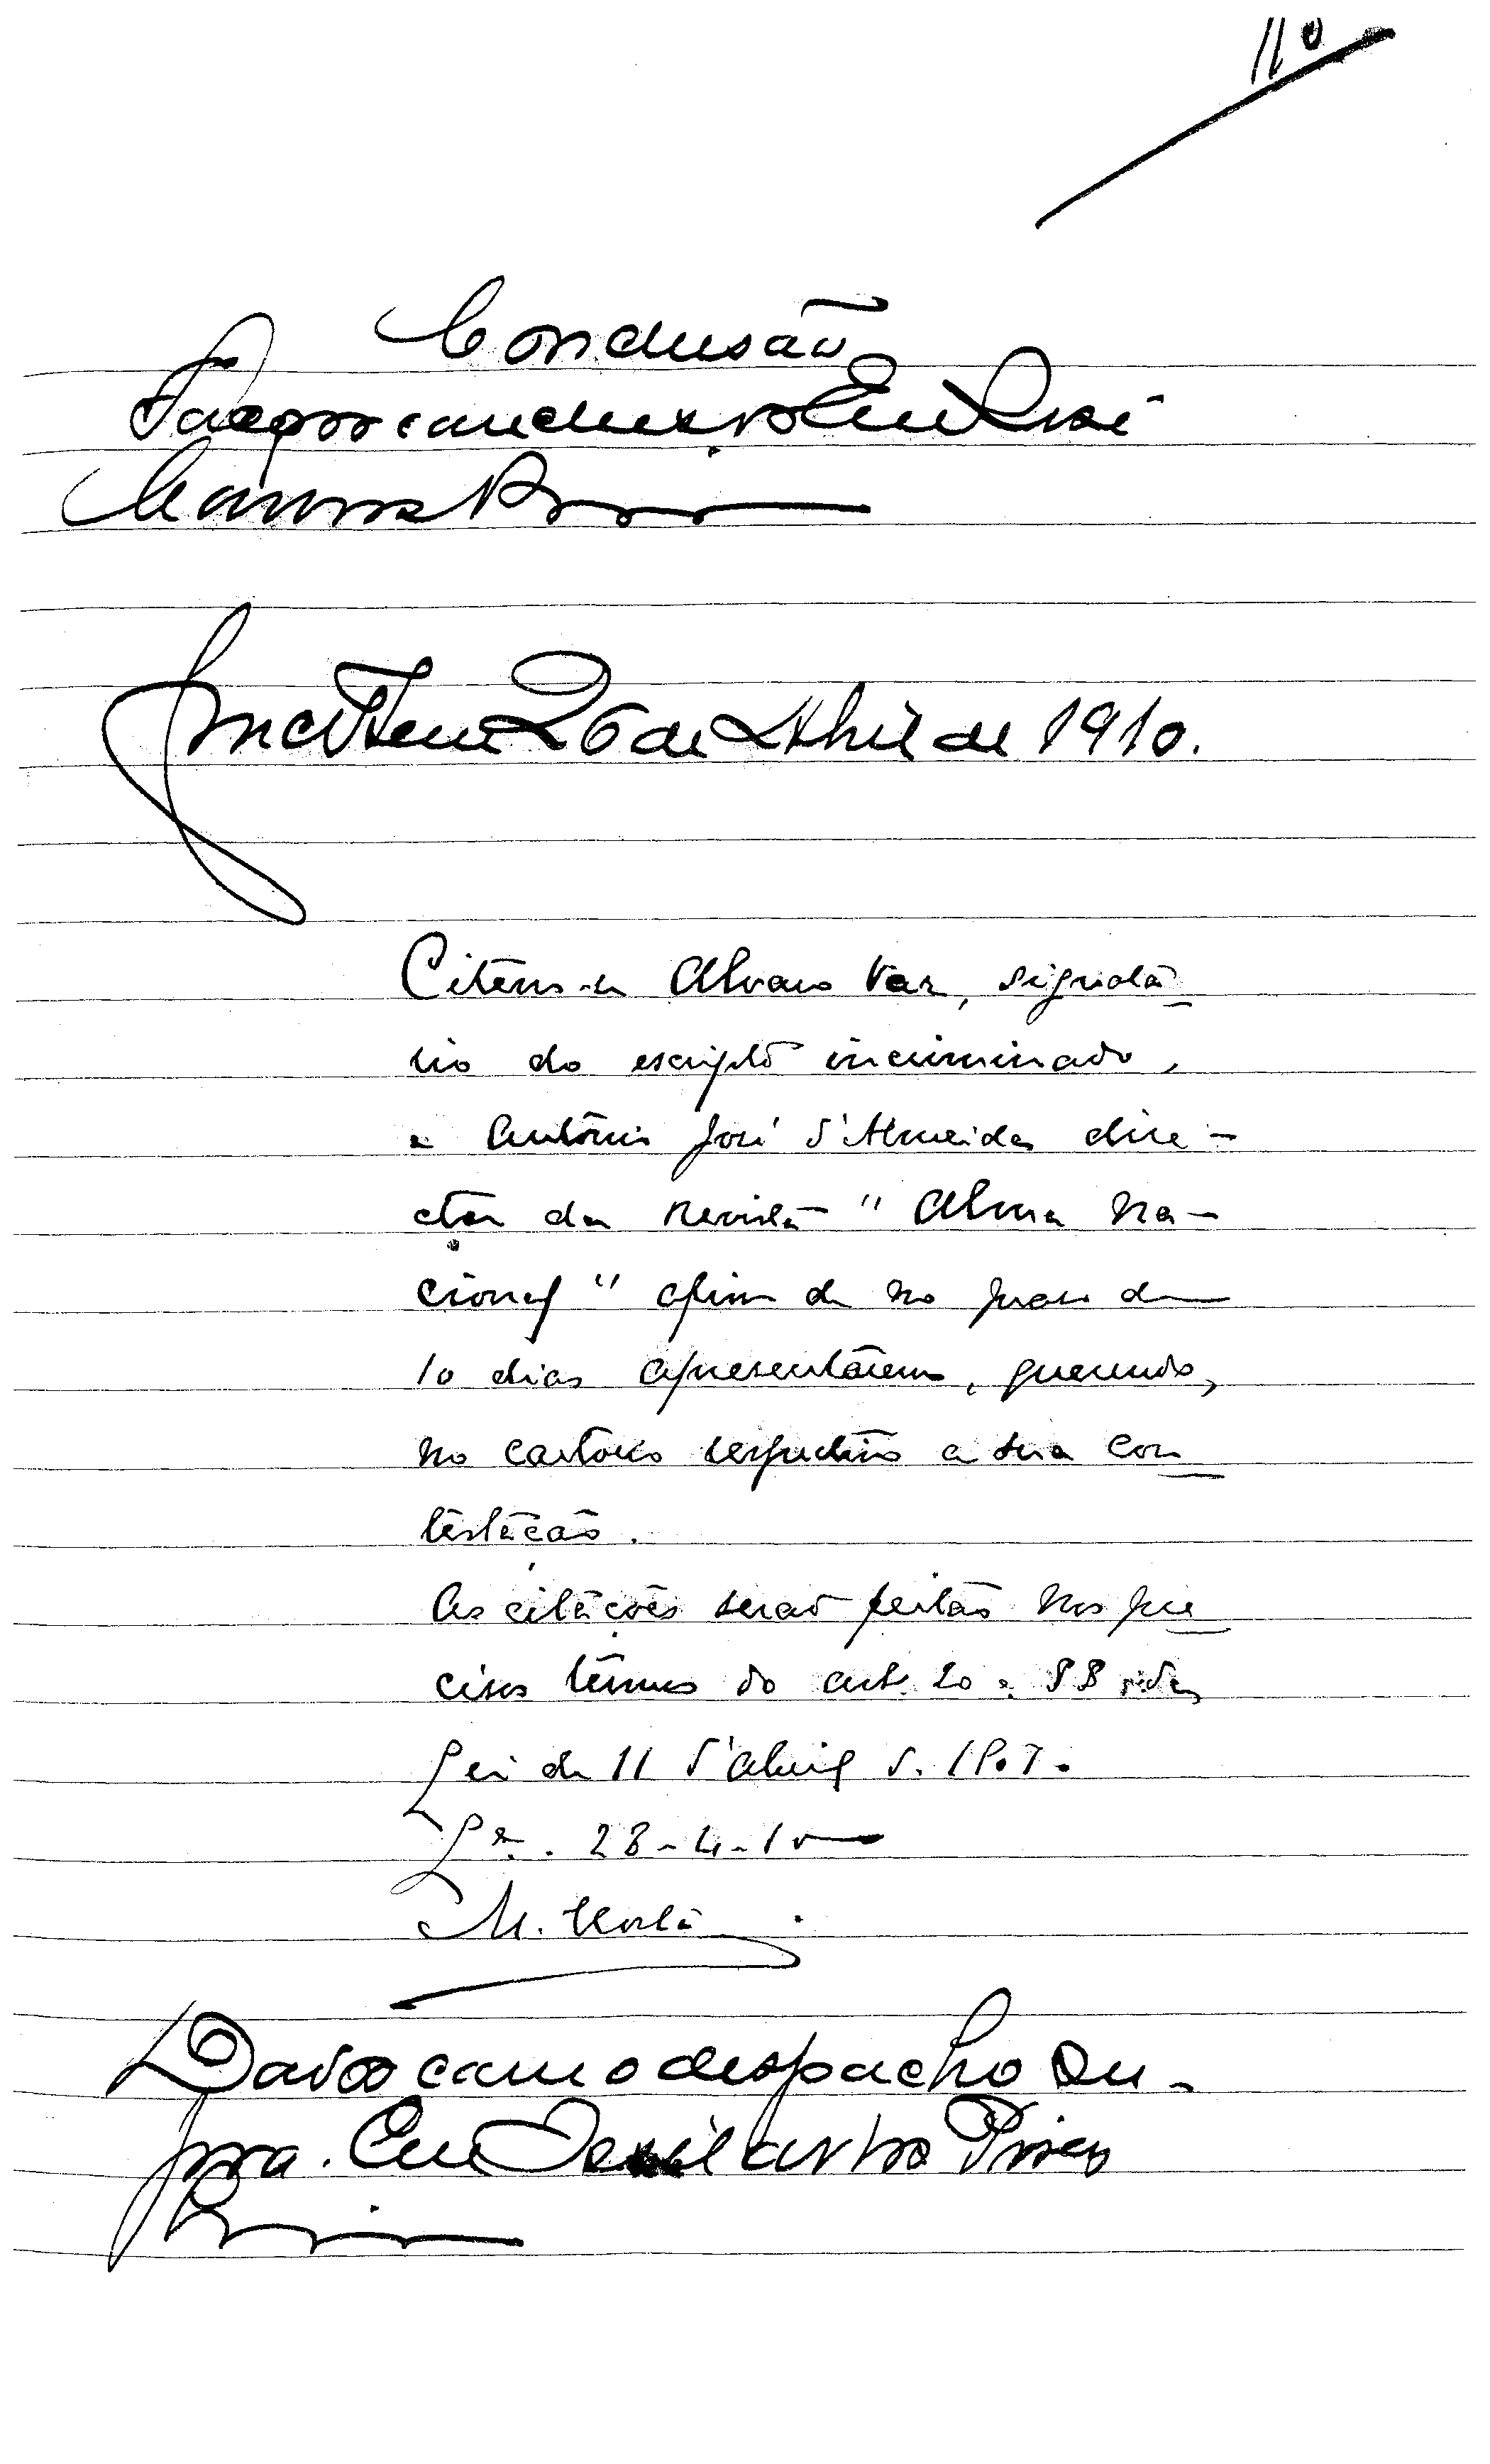 11º
Conclusão
Faço conclusos. Eu José
em 26 de Abril de 1910.
Citem-se Alvaro Vaz, signatá-
rio do escripto incriminado,
e António José d'Almeida dire-
ctor da Revista "Alma Na-
cional" afim de no praso de
10 dias apresentárem, querendo,
no cartorio respectivo a sua con-
testação.
As citações serão feitas nos pre-
cisos termos do art. 20 e §§ da
Lei de 11 d'Abril d. 1907.
Lxª. 28-4-10
M. Horta
Dados com o despacho su-
pra. Eu